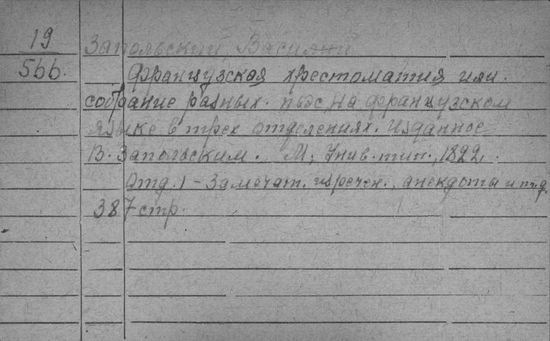 19
566.
Запольский, Василий
Французская хрестоматия или
собрание разных пьес на французском
языке в трех отделениях. Изданное
В. Запольским. М., Унив. тип., 1822.
Отд. 1 - Замечат. изречен., анекдоты и т.д.
387 стр.